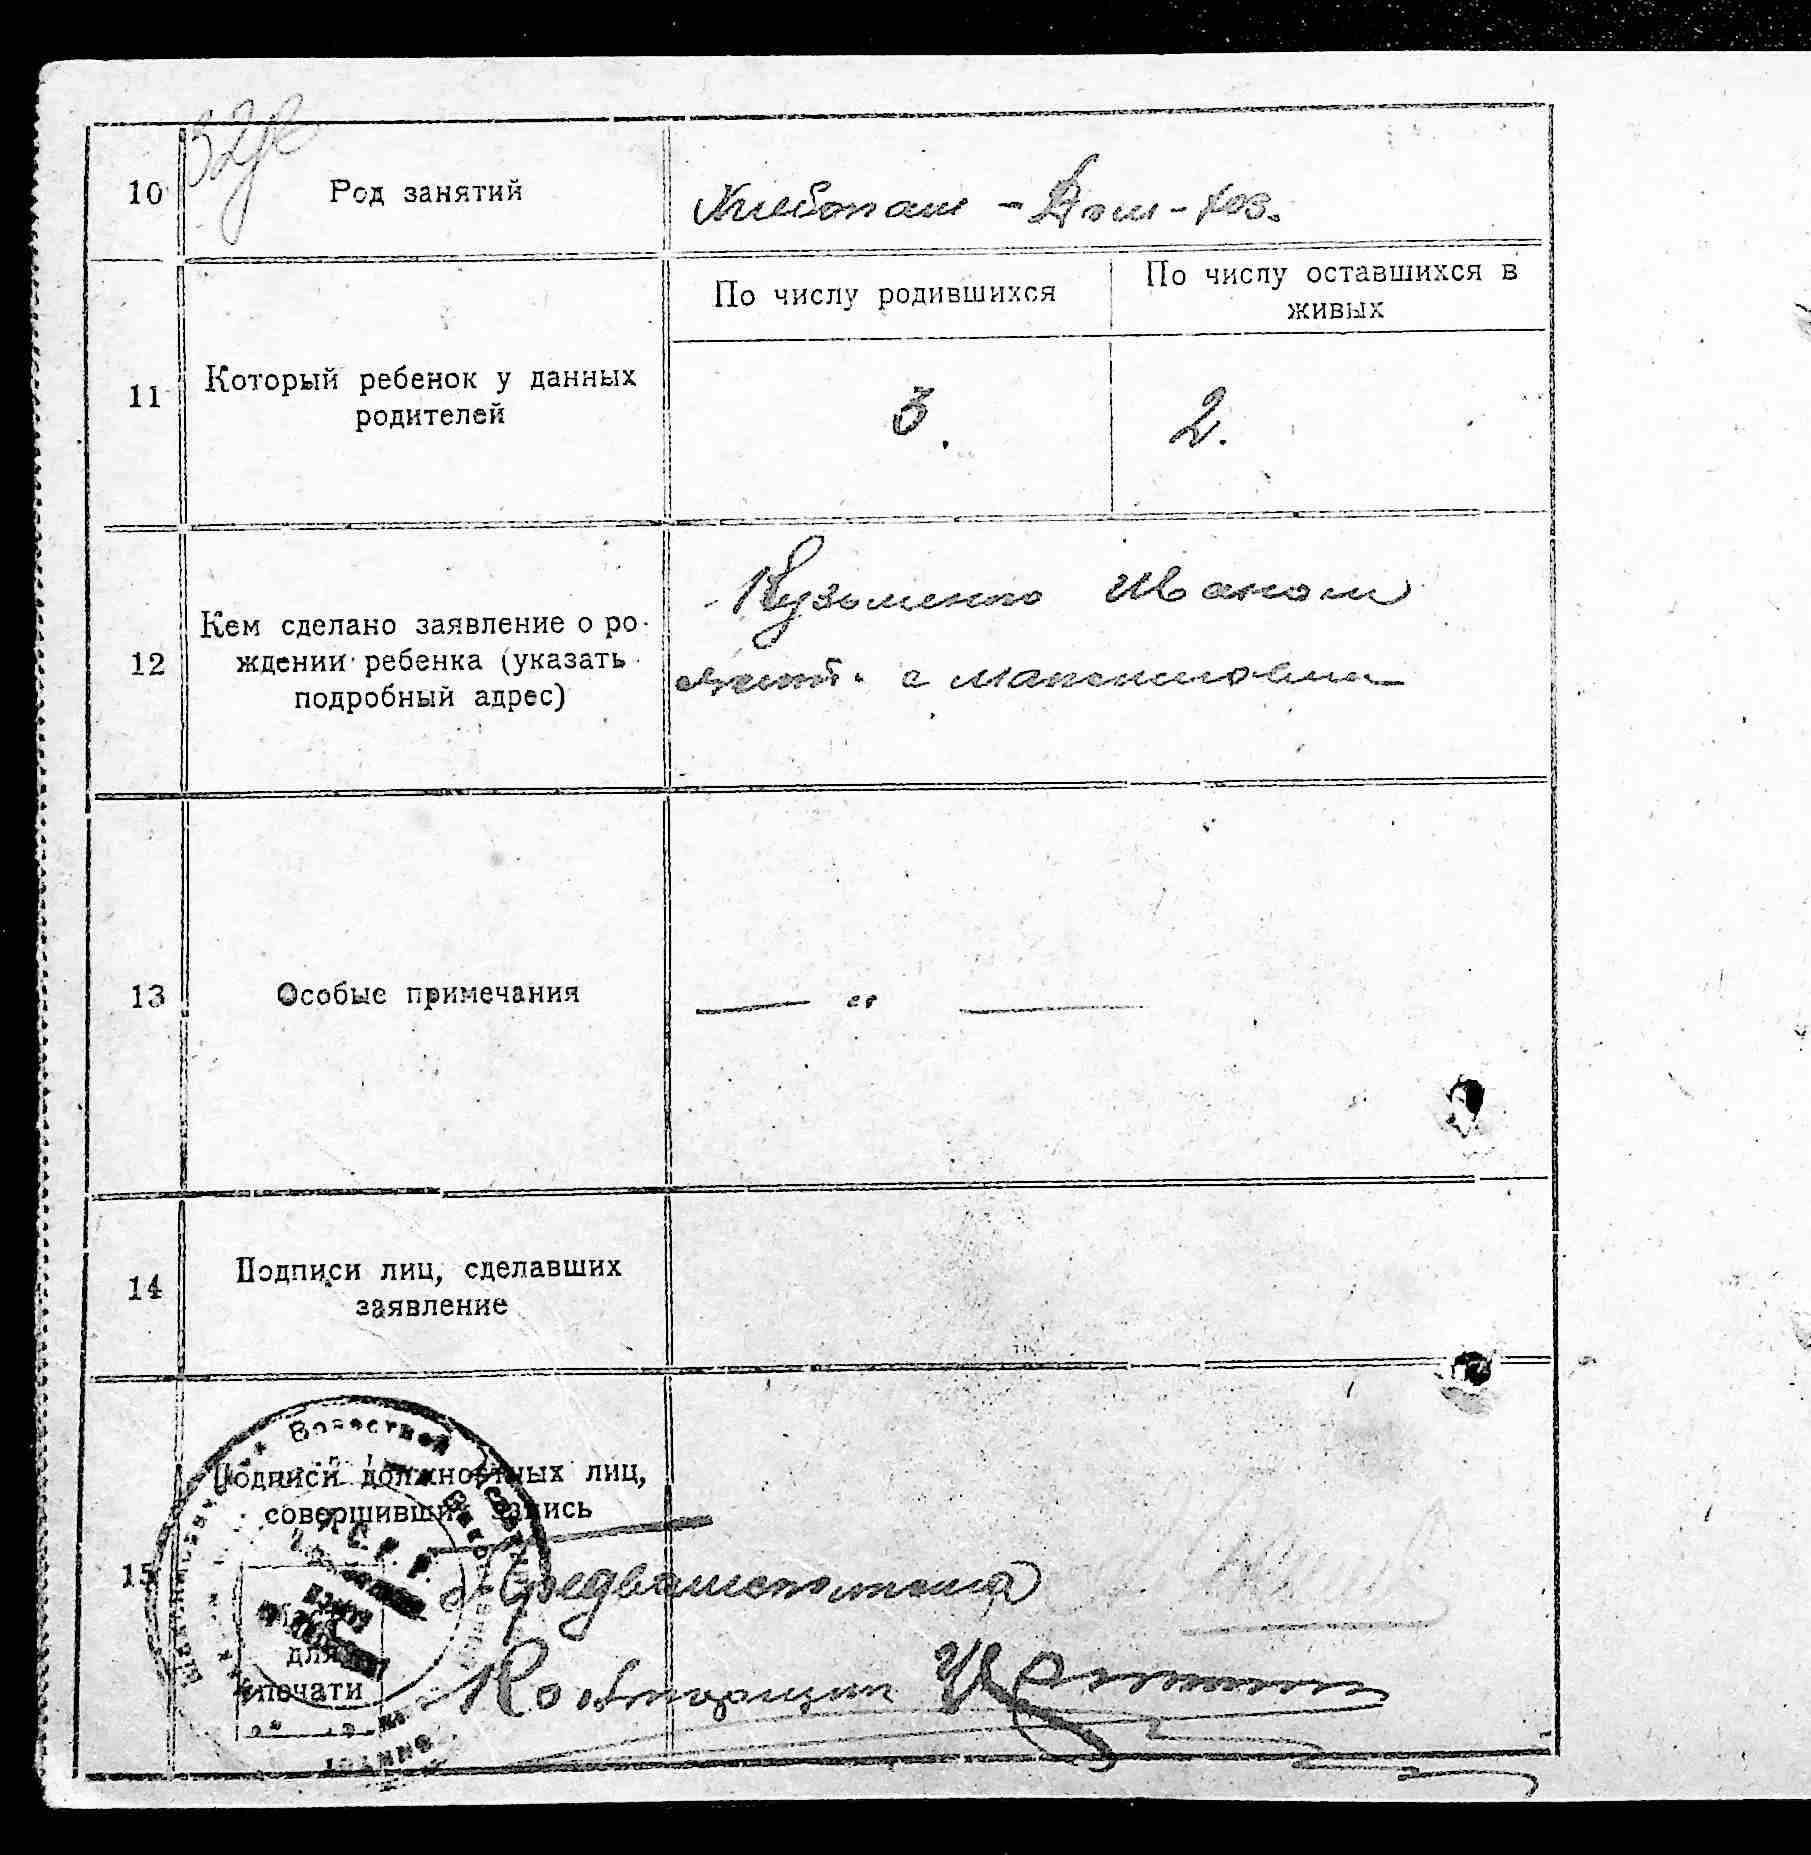 10
Род занятий
Хлебопаш - Дом-хоз.
11
Который ребенок у данных
родителей
По числу родившихся
По числу оставшихся в
живых
3.
2.
12
Кем сделано заявление о ро-
ждении ребенка (указать
подробный адрес)
Кузьменко Иваном
жит. с
13
Особые примечания
— " —
14
Подписи лиц, сделавших
заявление
15
Подписи должностных лиц,
совершивших запись
Предволисполкома
Делопроизв
для
печати